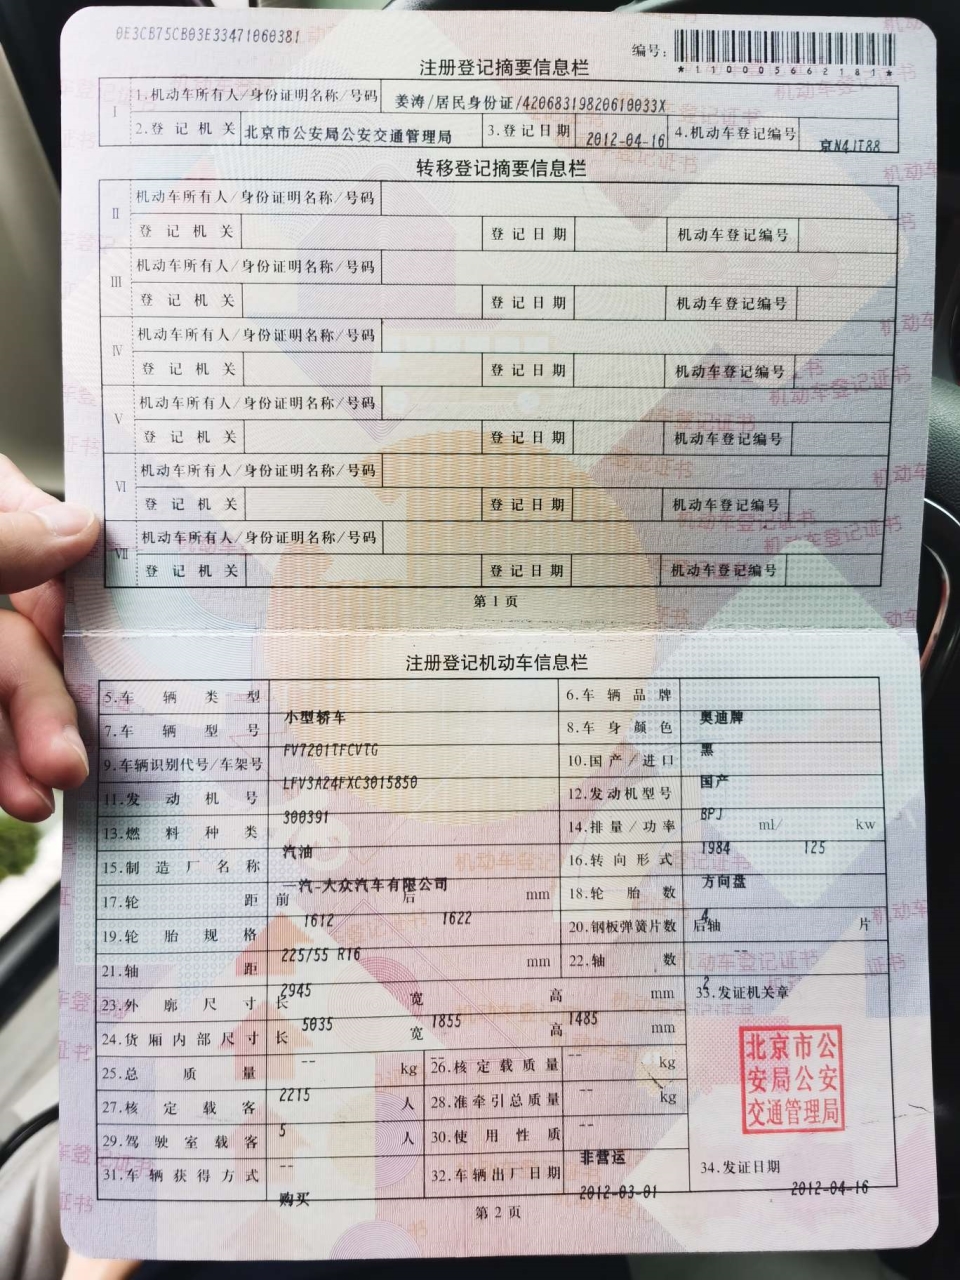 0E3CB75CB03E33471060381
编号：
*110005662181*
注册登记摘要信息栏
I 1.机动车所有人/身份证明名称/号码 姜涛/居民身份证/42068319820610033X
2.登记机关 北京市公安局公安交通管理局 3.登记日期 2012-04-16 4.机动车登记编号 京N4JT88
转移登记摘要信息栏
II 机动车所有人/身份证明名称/号码
登记机关 登记日期 机动车登记编号
III 机动车所有人/身份证明名称/号码
登记机关 登记日期 机动车登记编号
IV 机动车所有人/身份证明名称/号码
登记机关 登记日期 机动车登记编号
V 机动车所有人/身份证明名称/号码
登记机关 登记日期 机动车登记编号
VI 机动车所有人/身份证明名称/号码
登记机关 登记日期 机动车登记编号
VII 机动车所有人/身份证明名称/号码
登记机关 登记日期 机动车登记编号
第1页
注册登记机动车信息栏
5.车辆类型 小型轿车 6.车辆品牌 奥迪牌
7.车辆型号 FV7201TFCVTG 8.车身颜色 黑
9.车辆识别代号/车架号 LFV3A24FXC3015850 10.国产/进口 国产
11.发动机号 300391 12.发动机型号 BPJ
13.燃料种类 汽油 14.排量/功率 1984 ml/ 125 kw
15.制造厂名称 一汽-大众汽车有限公司 16.转向形式 方向盘
17.轮距 前 1612 后 1622 mm 18.轮胎数 4
19.轮胎规格 225/55 R16 20.钢板弹簧片数 后轴 -- 片
21.轴距 2945 mm 22.轴数 2
23.外廓尺寸 长 5035 宽 1855 高 1485 mm 33.发证机关章
24.货厢内部尺寸 长 -- 宽 -- 高 -- mm
北京市公
安局公安
交通管理局
25.总质量 2215 kg 26.核定载质量 -- kg
27.核定载客 5 人 28.准牵引总质量 -- kg
29.驾驶室载客 -- 人 30.使用性质 非营运
31.车辆获得方式 购买 32.车辆出厂日期 2012-03-01 34.发证日期 2012-04-16
第2页